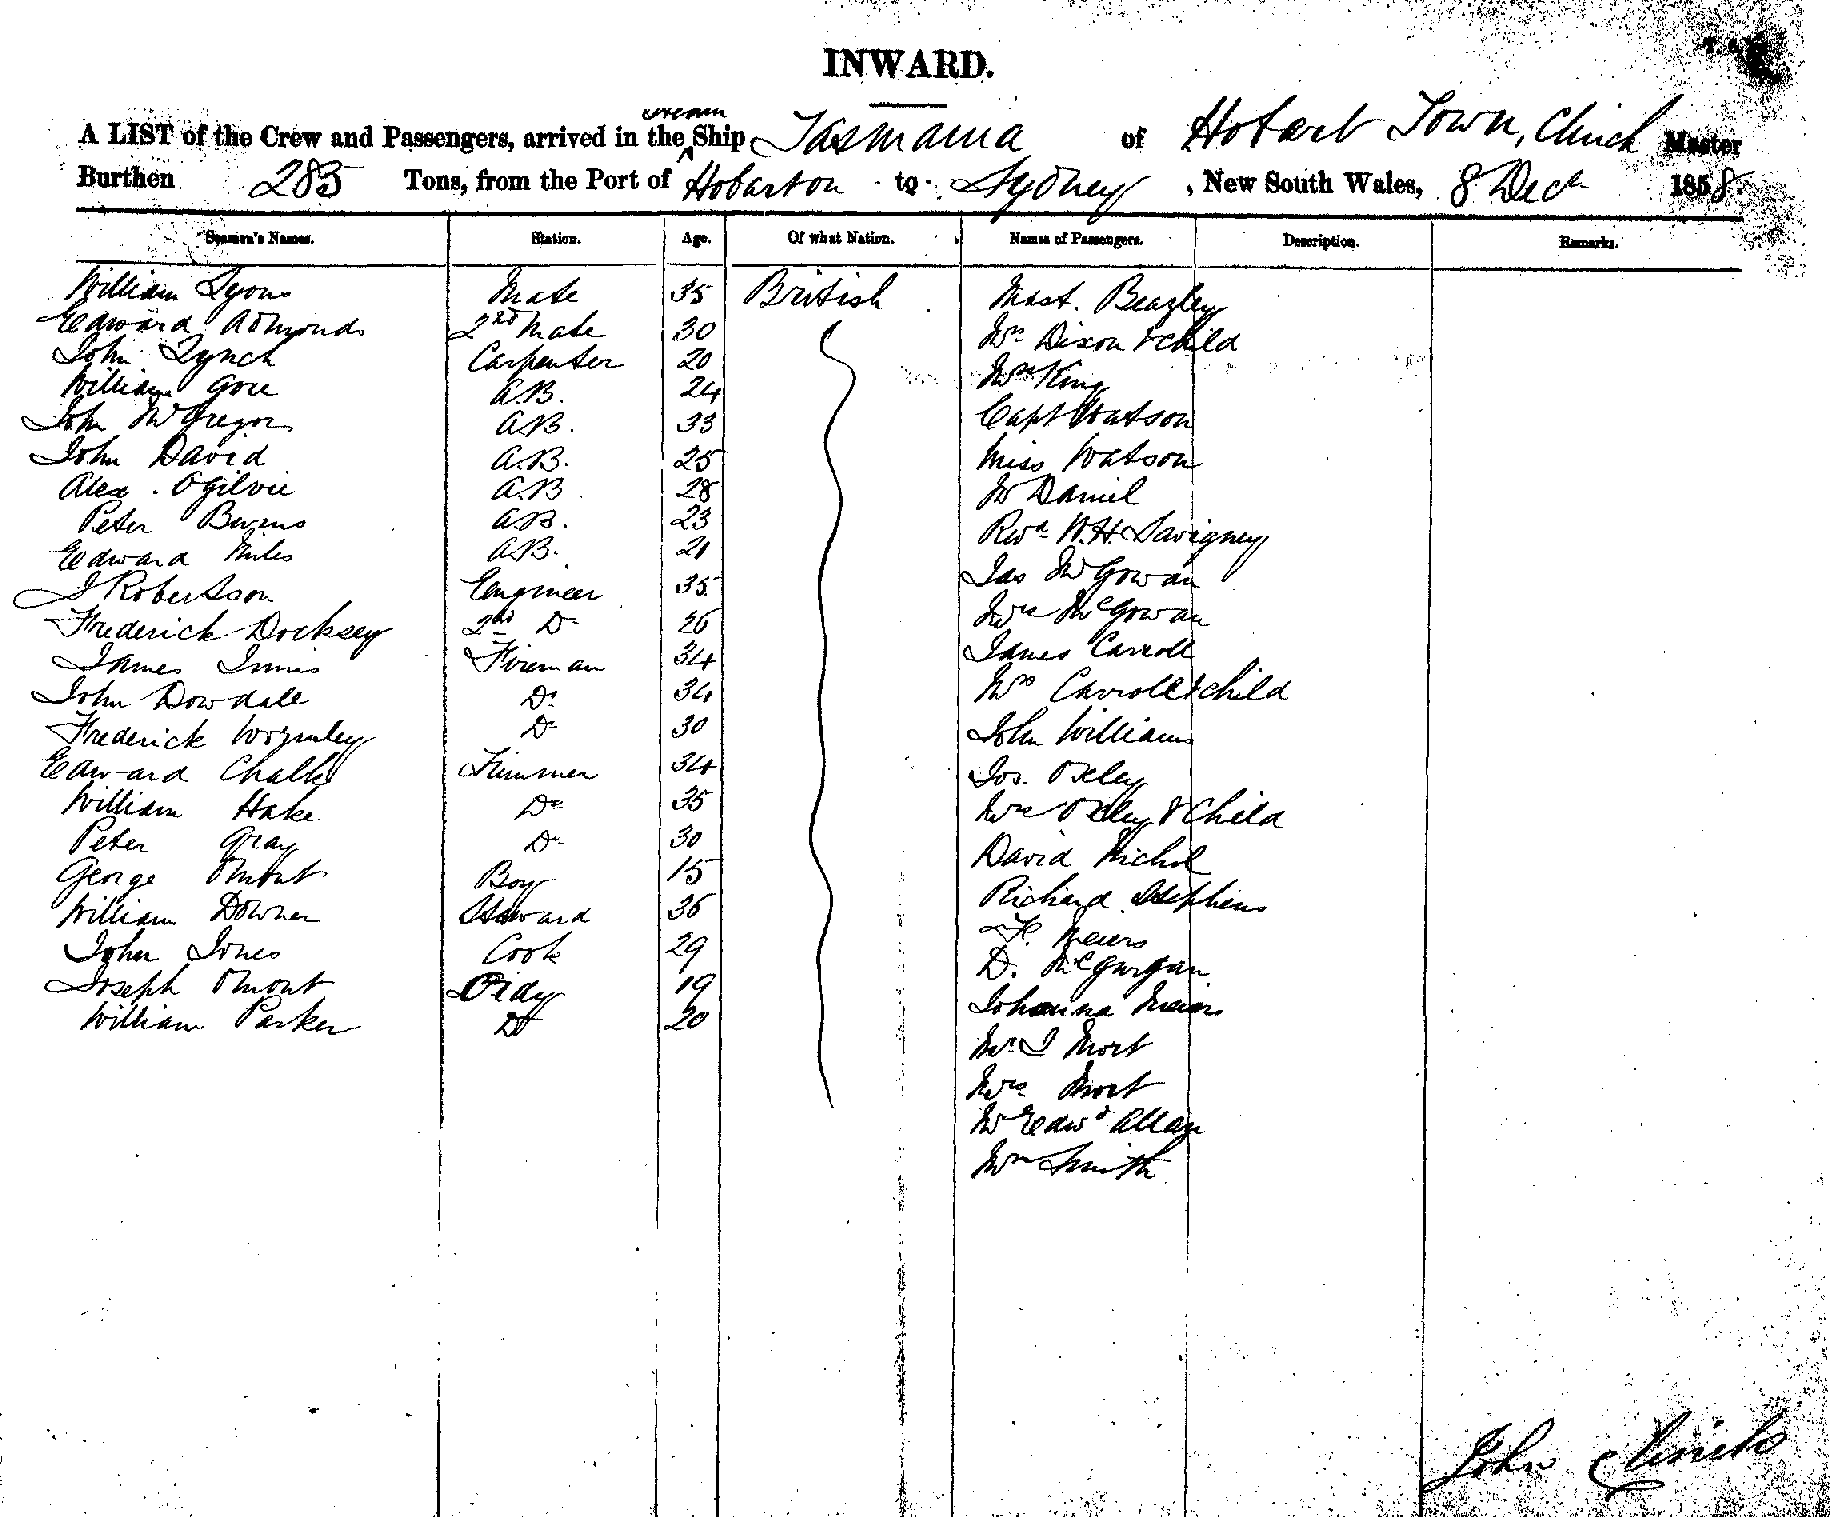 INWARD.
steam
A LIST of the Crew and Passengers, arrived in the Ship Tasmania of Hobart Town, Clinch Master
Burthen 285 Tons, from the Port of Hobarton to Sydney, New South Wales, 8 Dec 1858.
Seamen's Names. Station. Age. Of what Nation. Names of Passengers. Description. Remarks.
William Lyons Mate 35 British Mast. Beazley
Edward Admonds 2nd Mate 30 Mrs Dixon & child
John Lynch Carpenter 20 Mrs King
William Gore A.B. 24 Capt Watson
John McGregor A.B. 33 Miss Watson
John David A.B. 25 Mr Daniel
Alex. Ogilvie A.B. 28 Revd W.H. Savigney
Peter A.B. 23 Jas McGowan
Edward Miles A.B. 21 Mrs McGowan
J Robertson Engineer 35 James Carroll
Frederick Docksey 2nd Do 26 Mrs Carroll & child
James Innis Fireman 34 John Williams
John Dowdall Do 34 Jos. Oxley
Frederick Wormley Do 30 Mrs Oxley & Child
Edward Chalk Trimmer 34 David Nichol
William Hake Do 35 Richard Stephens
Peter Gray Do 30 F. Meiers
George Omont Boy 15 D. McGurgan
William Downer Steward 36 Johanna Meiers
John Jones Cook 29 Mr J Mort
Joseph Omont 19 Mrs Mort
William Parker Do 20 Mr Edwd Allan
Mrs Smith
John Clinch